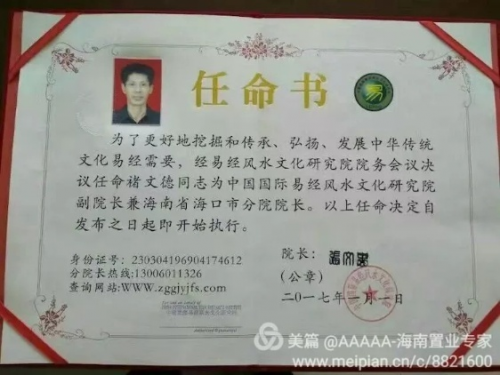 任命书
为了更好地挖掘和传承、弘扬、发展中华传统
文化易经需要,经易经风水文化研究院院务会议决
议任命褚文德同志为中国国际易经风水文化研究院
副院长兼海南省海口市分院院长。以上任命决定自
发布之日起即开始执行。
身份证号:230304196904174612
分院长热线:13006011326
查询网站:WWW.zggjyjfs.com
院长:
(公章)
二〇一七年一月一日
美篇 @AAAAA-海南置业专家
www.meipian.cn/c/8821600